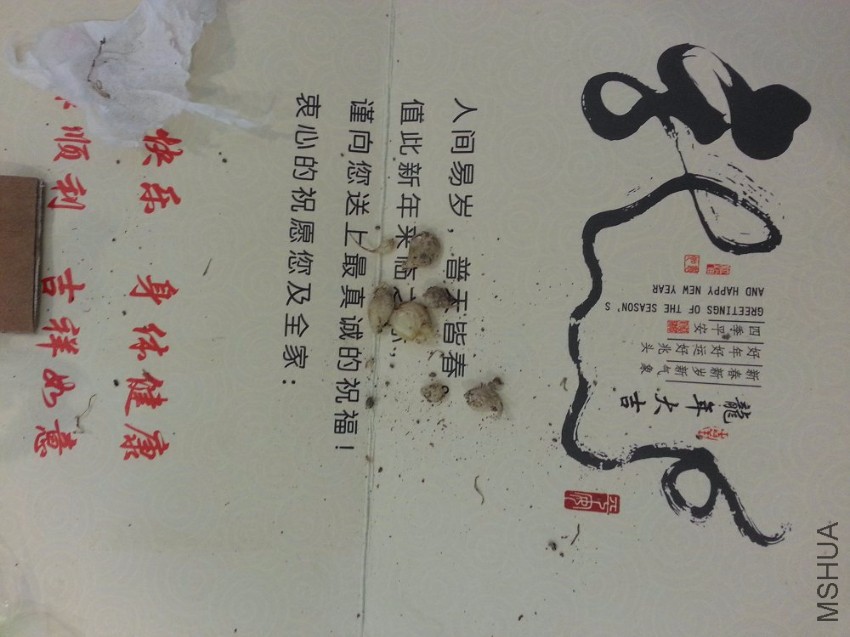 龍年大吉
新春新岁新气象
好年好运好兆头
四季平安
GREETINGS OF THE SEASON'S
AND HAPPY NEW YEAR
人间易岁，普天皆春
值此新年来临
谨向您送上最真诚的祝福！
衷心的祝愿您及全家：
快乐 身体健康
顺利 吉祥如意
MSHUA